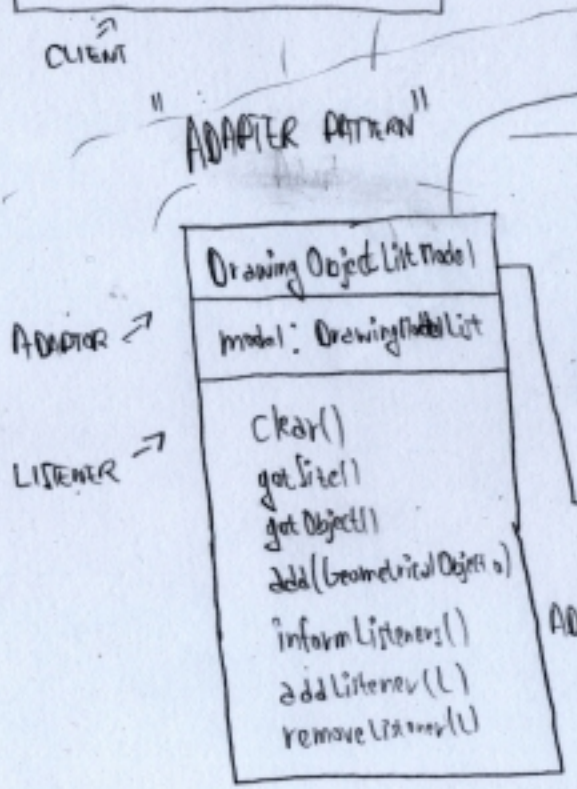 CLIENT
"ADAPTER PATTERN"
DrawingObjectListModel
ADAPTOR
model: DrawingModelList
LISTENER
clear()
getSize()
getObject()
add(GeometricalObject o)
informListeners()
addListener(L)
removeListener(L)
AD